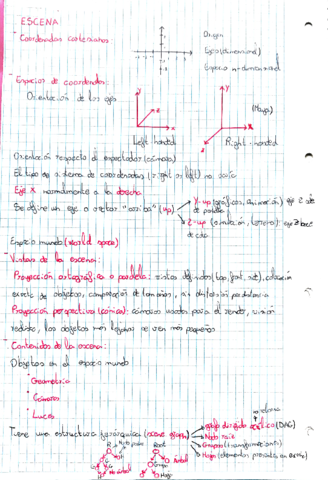 ESCENA
- Coordenadas cartesianas
Origen
Ejes (dimensional)
Espacio n-dimensional
- Espacios de coordenadas:
Orientación de los ejes
Y
Z
X
Left-handed
Y
X
Z
Right-handed
(Maya)
Orientación respecto al espectador (cámara)
El tipo de sistema de coordenadas (right or left) no varía
Eje X normalmente a la derecha
Se define un eje a estar "arriba" (up)
Y-up (gráficos, animación) eje Z
Z-up
Espacio mundo (world space)
- Vistas de la escena:
Proyección ortográfica o paralela: vistas definidas (top, front, ), colocación
exacta de objetos, comparación de tamaños, sin distorsión
Proyección perspectiva (cónica): cámaras usadas para el render, visión
realista, los objetos más lejanos se ven más pequeños
- Contenidos de la escena:
Objetos en el espacio mundo
- Geometría
- Cámaras
- Luces
Tiene una estructura jerárquica (scene graph)
grafo dirigido acíclico (DAG)
Nodo raíz
Grupos (transformaciones)
Hojas (elementos
R
Root
Árbol
Hoja